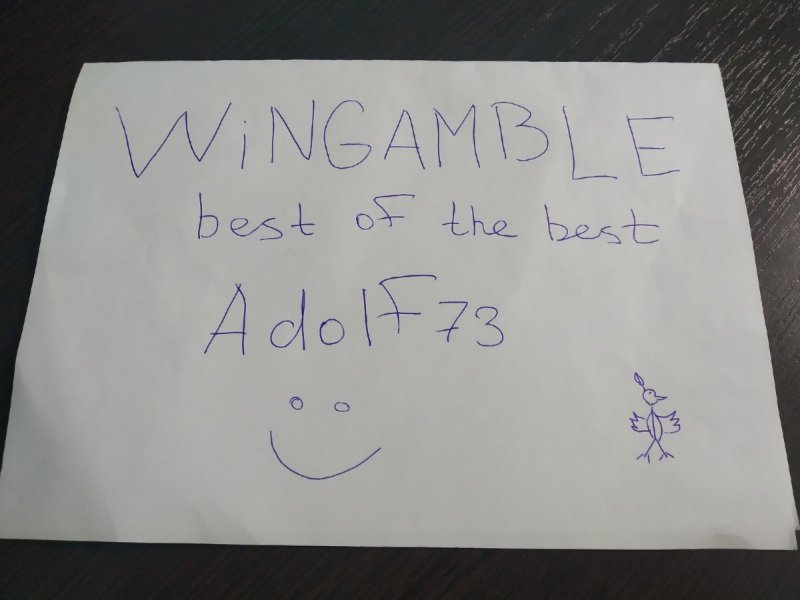 WiNGAMBLE
best of the best
Adolf73